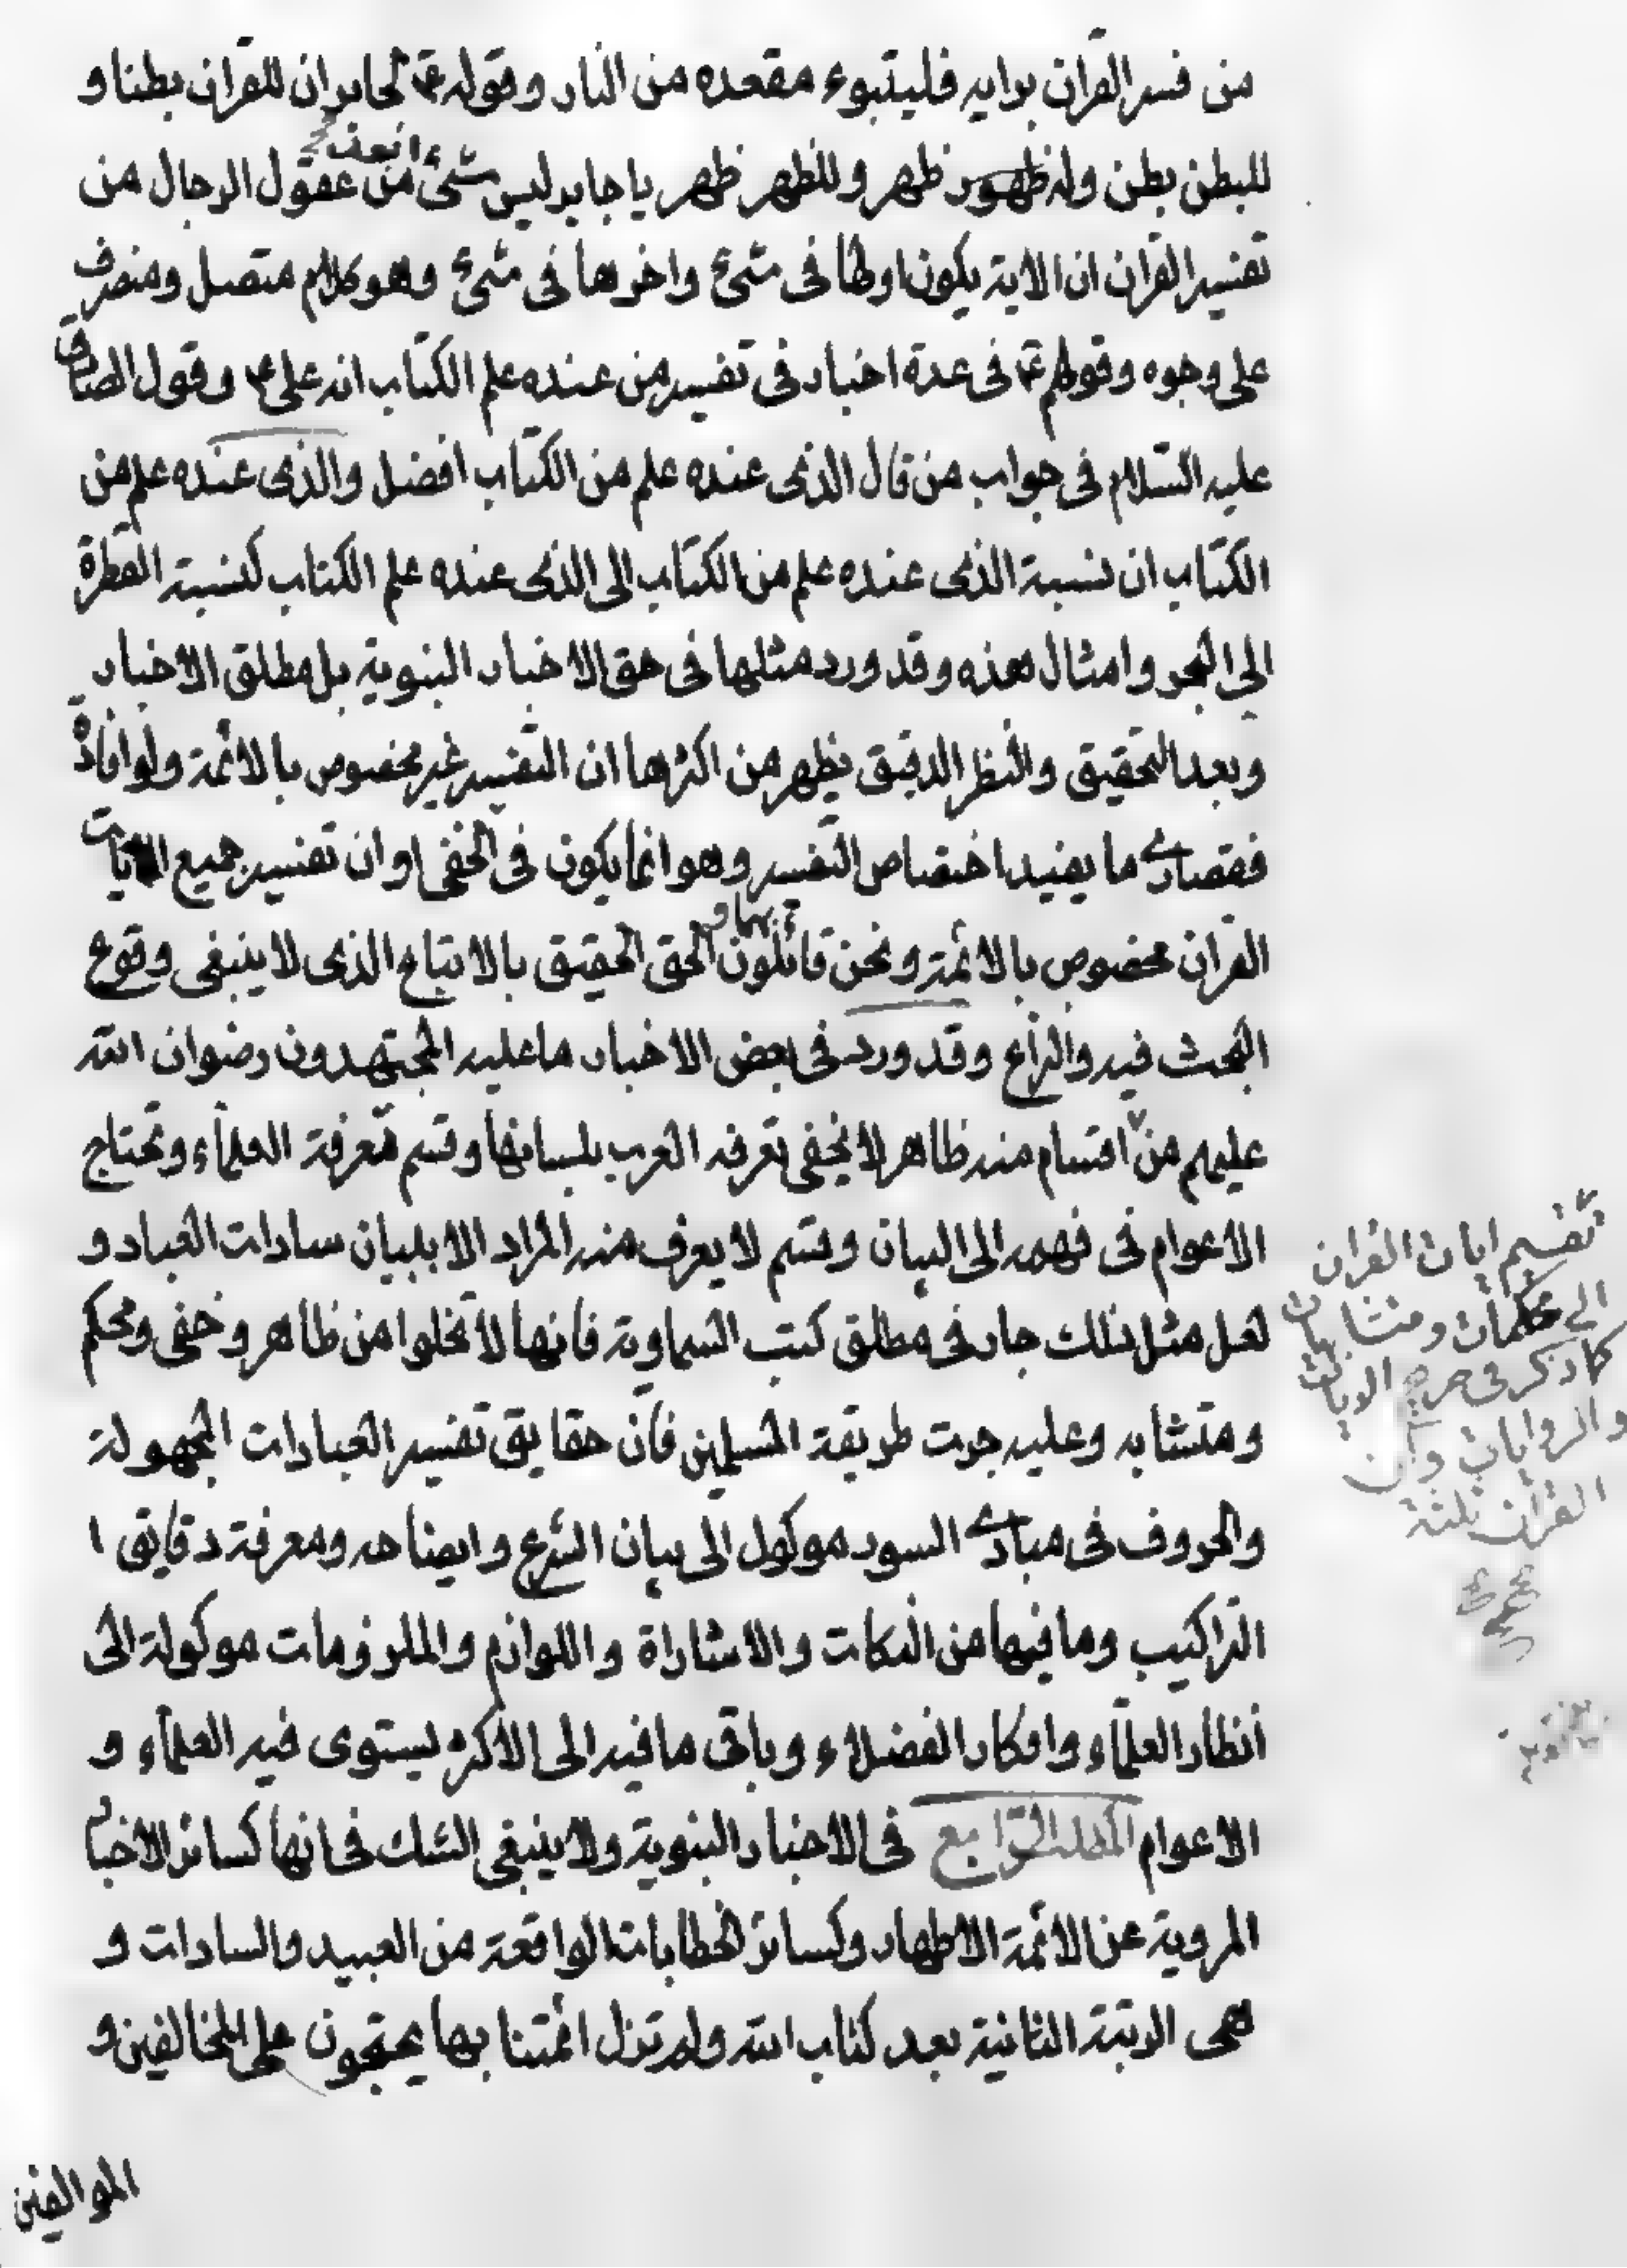 من فسر القران برايه فليتبوء مقعده من النار وقوله ع لجابر ان للقران بطنا و
للبطن بطن وله ظهور ظهر وللظهر ظهر يا جابر ليس شئ ابعد من عقول الرجال من
تفسير القران ان الاية يكون اولها فى شئ واخرها فى شئ وهو كلام متصل ومنصرف
على وجوه وقولهم ع فى عدة اخبار فى تفسير من عنده علم الكتاب انه على ع وقول الصادق
عليه السلام فى جواب من قال الذى عنده علم من الكتاب افضل والذى عنده علم من
الكتاب ان نسبة الذى عنده علم من الكتاب الى الذى عنده علم الكتاب كنسبة القطرة
الى البحر وامثال هذه وقد ورد مثلها فى حق الاخبار النبوية بل مطلق الاخبار
وبعد التحقيق والنظر الدقيق يظهر من اكثرها ان التفسير غير مخصوص بالائمة ولو افادة
فقصارى ما يفيد اختصاص التفسير وهو انما يكون فى الخفى او ان تفسير جميع الايات
القران مخصوص بالائمة ونحن قائلون بهما والحق الحقيق بالاتباع الذى لا ينبغى وقوع
البحث فيه والنزاع وقد ورد فى بعض الاخبار ما عليه المجتهدون رضوان الله
عليهم من اقسام منه ظاهر لا يخفى تعرفه العرب بلسانها وقسم تعرفة العلماء وتحتاج
الاعوام فى فهمه الى البيان وقسم لا يعرف منه المراد الا ببيان سادات العباد و
لعل مثل ذلك جار فى مطلق كتب السماوية فانها لا تخلوا من ظاهر وخفى ومحكم
ومتشابه وعليه جرت طريقة المسلمين فان حقايق تفسير العبادات المجهولة
والحروف فى مبادى السور موكول الى بيان الشرع وايضاحه ومعرفة دقايق ا
التراكيب وما فيها من النكات والاشاراة واللوازم والملزومات موكولة الى
انظار العلماء وافكار الفضلاء وباقى ما فيه الى الاكثر يستوى فيه العلماء و
الاعوام المطلب الرابع فى الاخبار النبوية ولا ينبغى الشك فى انها كسائر الاخبار
المروية عن الائمة الاطهار وكسائر الخطابات الواقعة من العبيد والسادات و
هى الرتبة الثانية بعد كتاب الله ولم تزل ائمتنا بها يحتجون على المخالفين و
الموالفين
تقسيم ايات القران
الى محكمات ومتشابهات
كما ذكر فى الايات
والروايات وان
القران ثلثة